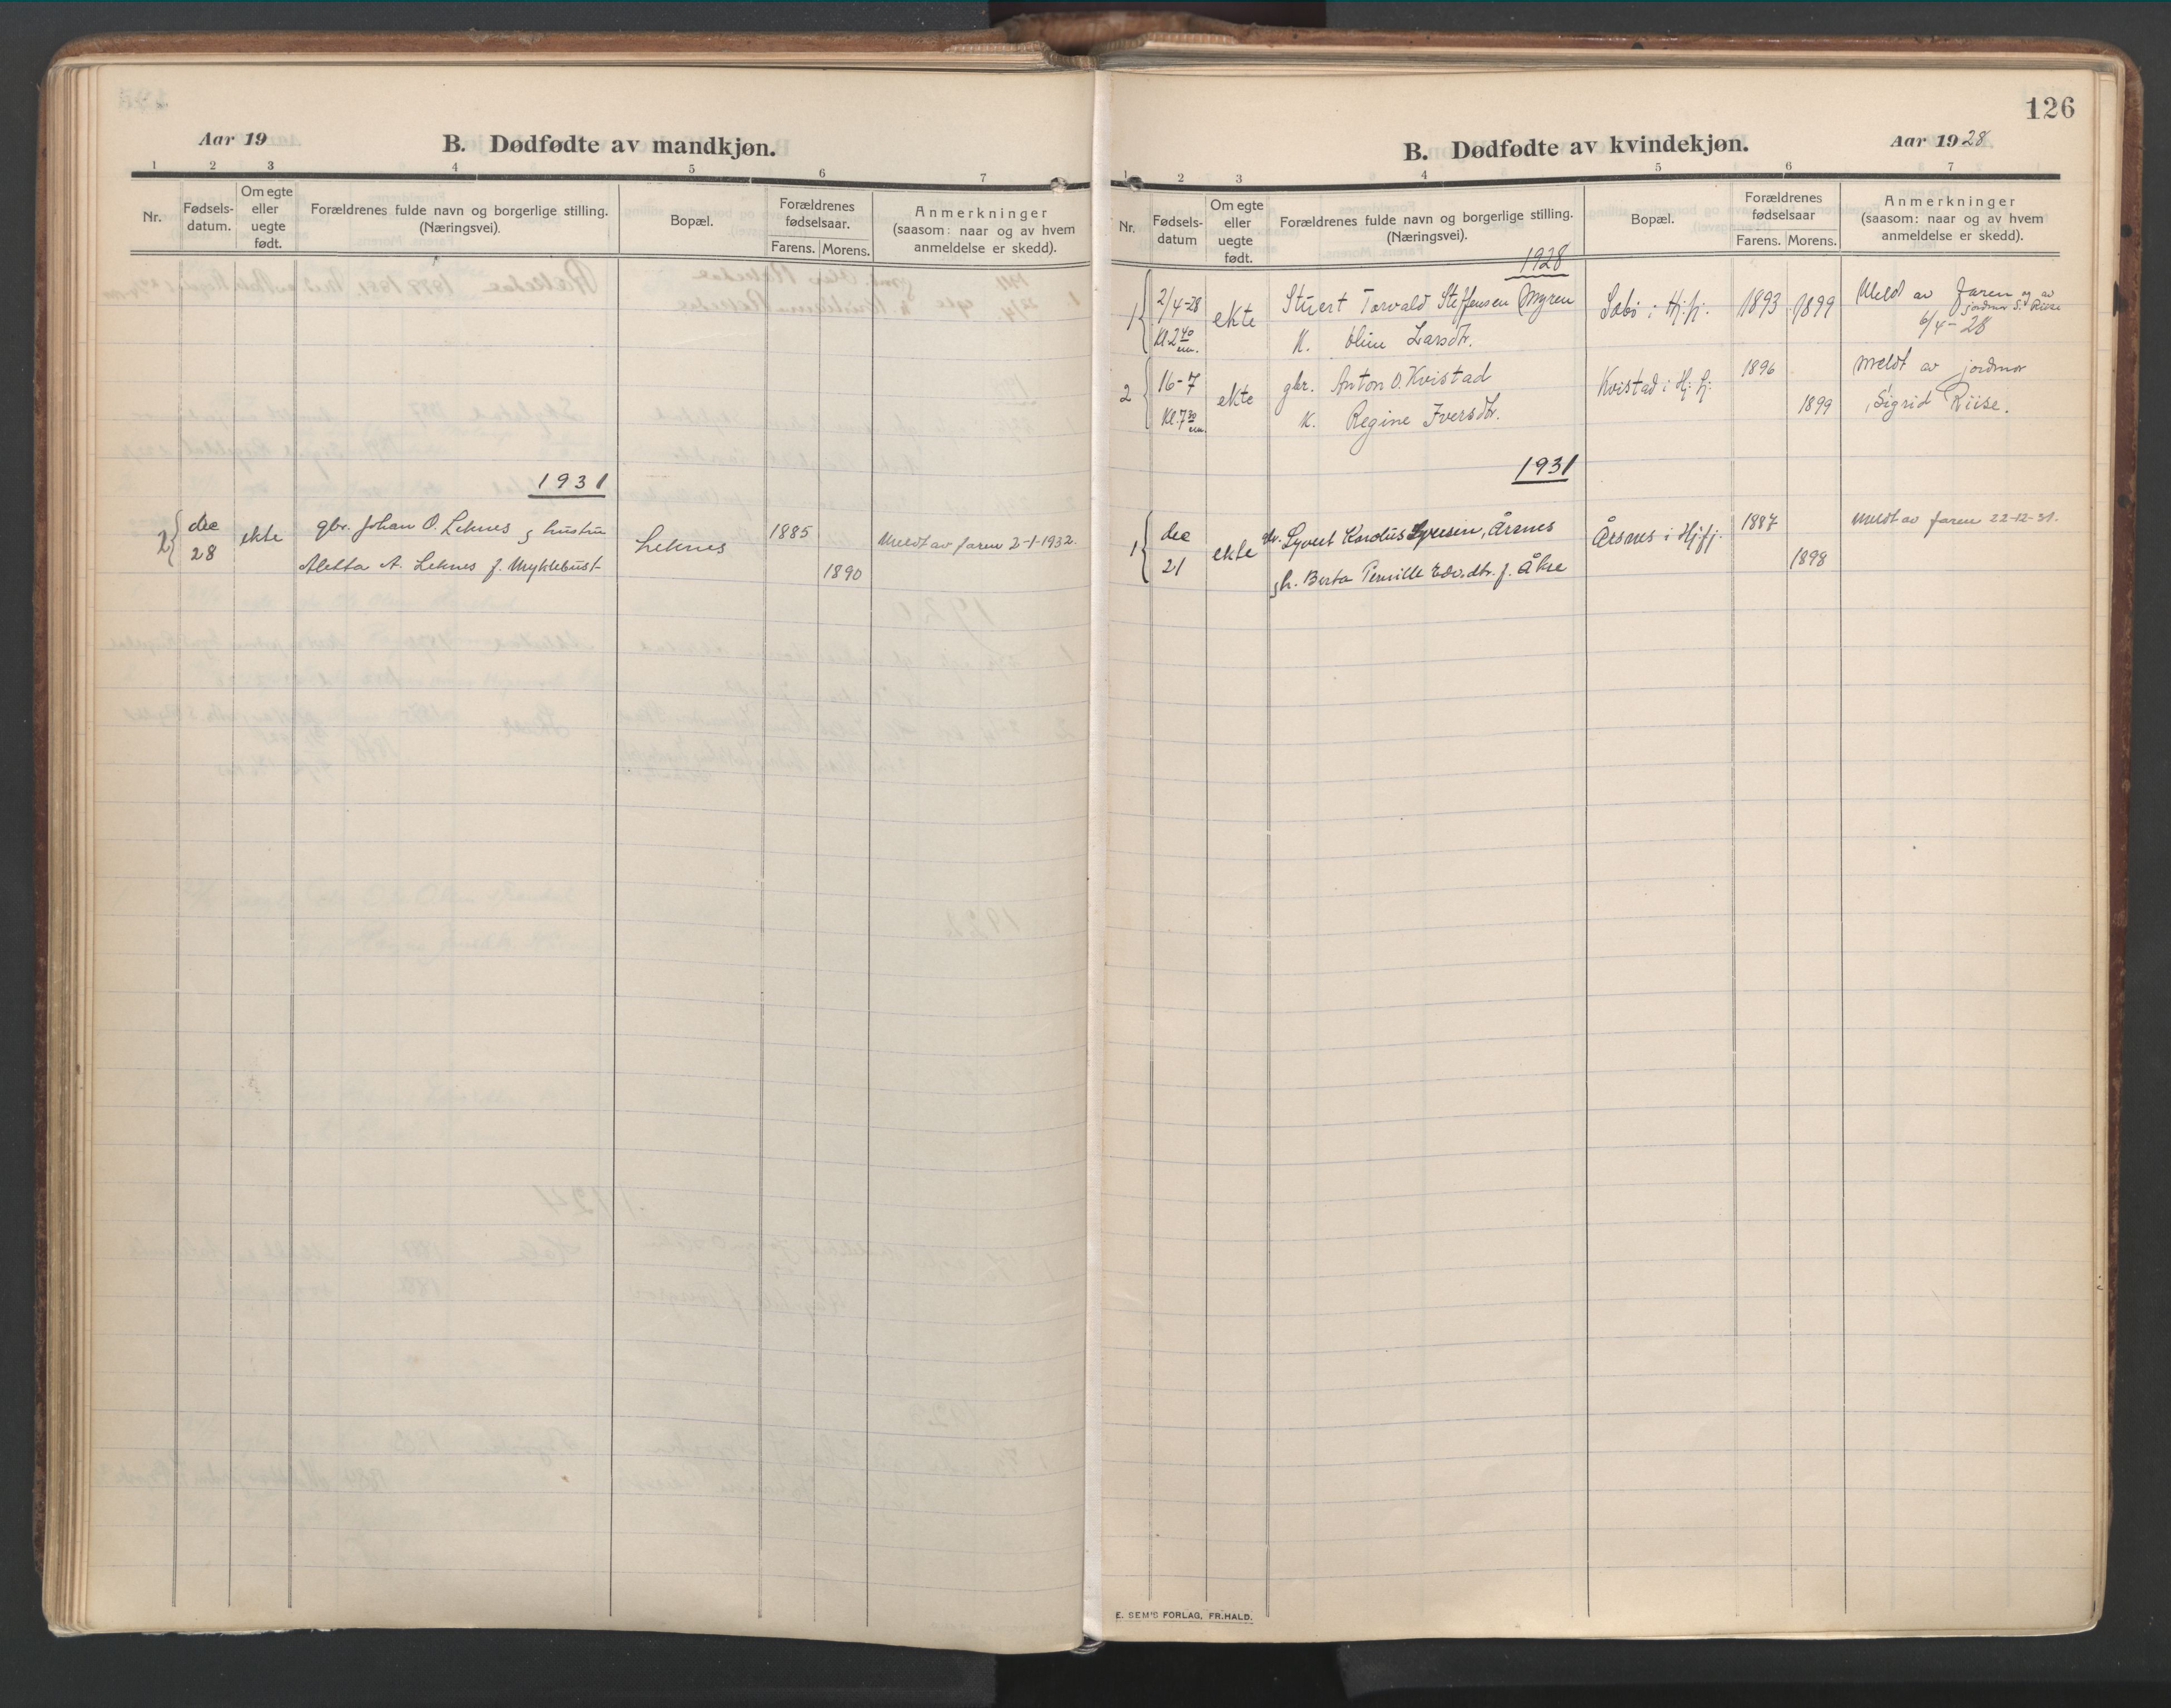 Aar 19
B. Dødfødte av mandkjøn.
1 2 3 4 5 6 7
Nr.
Fødsels-
datum.
Om egte
eller
uegte
født.
Forældrenes fulde navn og borgerlige stilling.
(Næringsvei).
Bopæl.
Forældrenes
fødselsaar.
Farens. Morens.
Anmerkninger
(saasom: naar og av hvem
anmeldelse er skedd).
1931
2 dec ekte gbr. Johan O. Leknes og hustru Leknes 1885 Meldt av faren 2-1-1932.
28 Aletta A. Leknes f. Myklebust 1890
126
B. Dødfødte av kvindekjøn.
Aar 1928
1 2 3 4 5 6 7
Nr.
Fødsels-
datum
Om egte
eller
uegte
født.
Forældrenes fulde navn og borgerlige stilling.
(Næringsvei).
Bopæl.
Forældrenes
fødselsaar
Farens. Morens.
Anmerkninger
(saasom: naar og av hvem
anmeldelse er skedd).
1928
1 2/4-28 ekte Stuert Torvald Steffensen Myren Sæbø i Hj.fj. 1893 1899 Meld av faren og av
jordmor S. Riise
Kl 2 40 em. K. Oline Larsdtr. 6/4-28
2 16-7 ekte gbr. Anton O. Kvistad Kvistad i Hj.fj. 1896 Meldt av jordmor
Kl. 7 30 em. K. Regine Iversdtr. 1899 Sigrid Riise.
1931
1 dec ekte gbr. Syvert Karolus Syversen, Årsnes Årsnes i Hj.fj. 1887 Meldt av faren 22-12-31.
21 og h. Berta Pernille Edv.dtr. f. Åkre 1898
E. SEM'S FORLAG, FR.HALD.